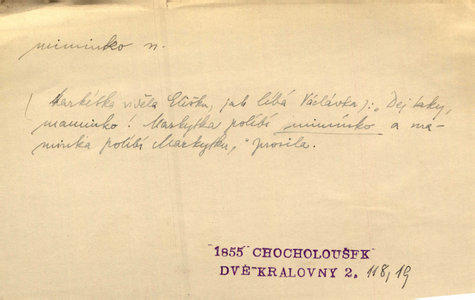 miminko n.
(Markétka viděla Elišku, jak líbá Václávka): „Dej taky,
maminko! Markytka políbí miminko a ma-
minka políbí Markytku," prosila.
1855 CHOCHOLOUŠEK
DVĚ KRALOVNY 2. 118,19